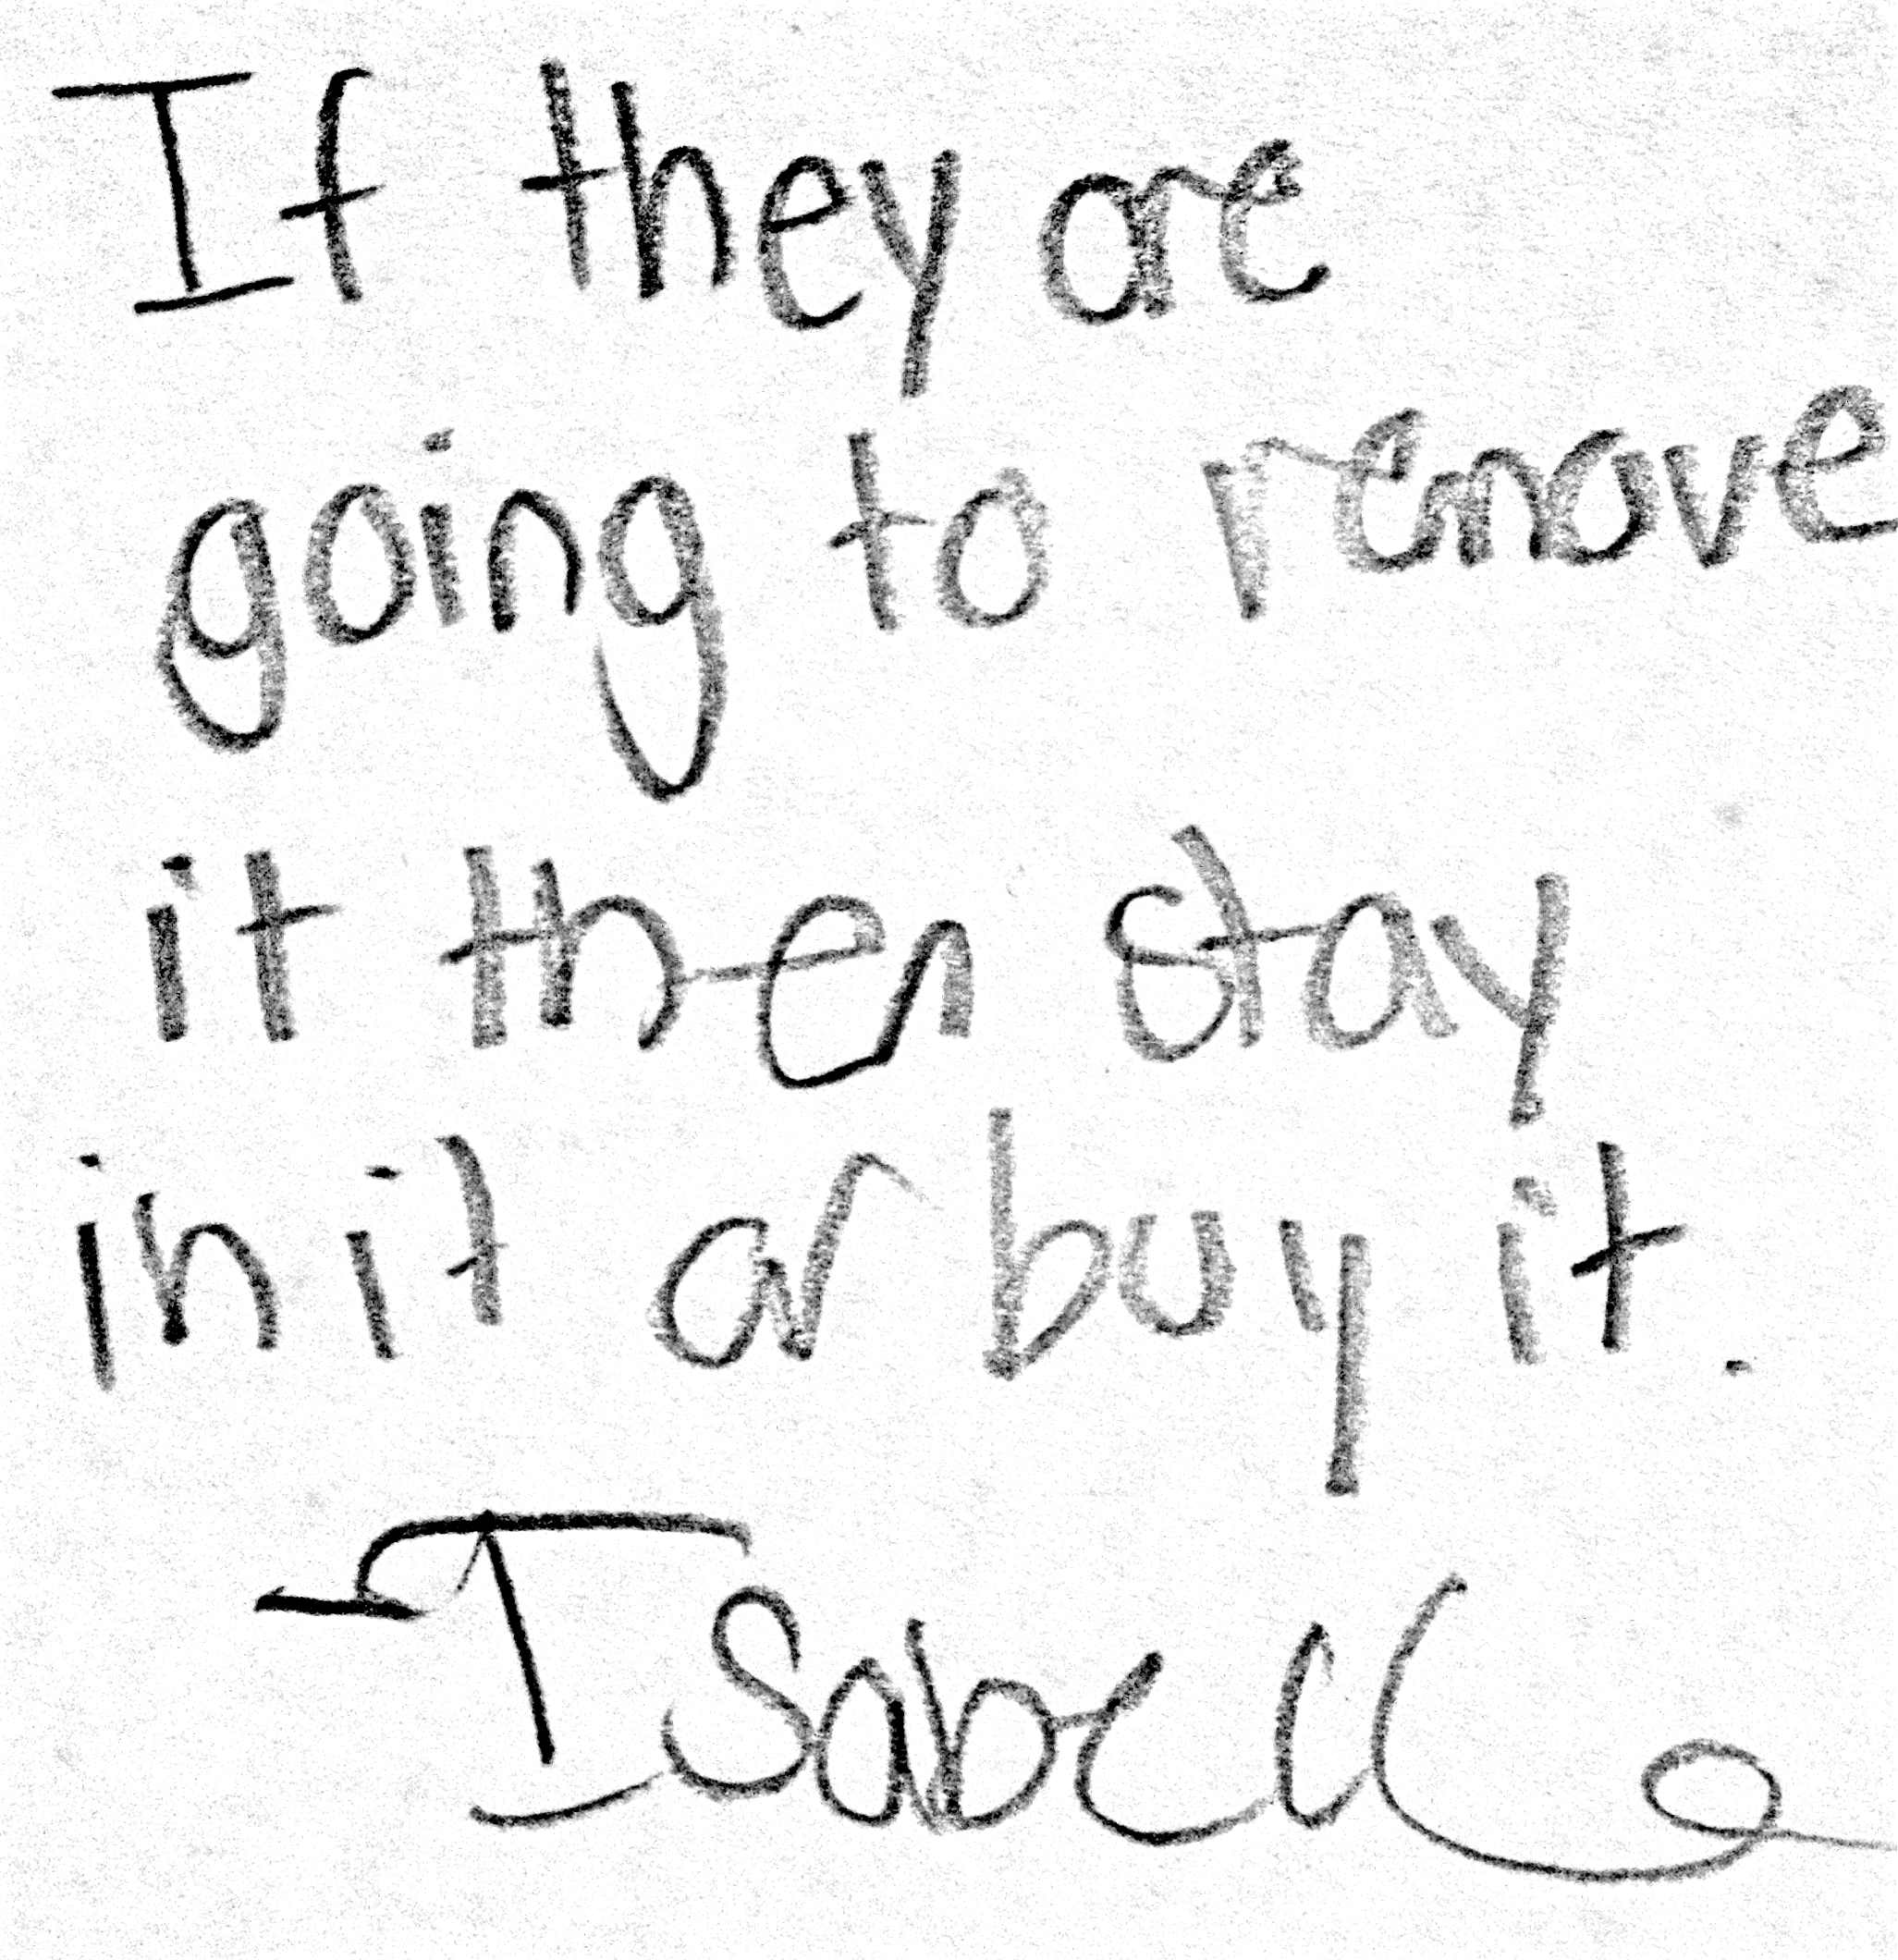 If they are
going to remove
it then stay
in it or buy it.
Isabelle